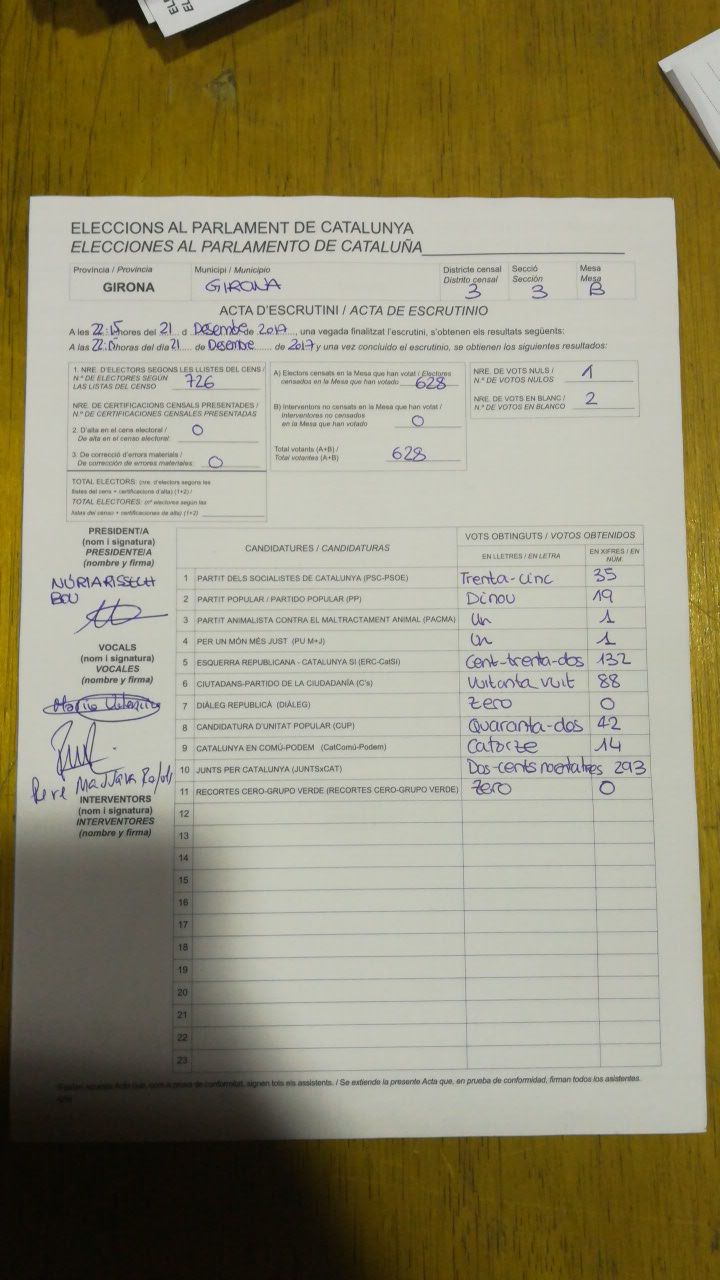 ELECCIONS AL PARLAMENT DE CATALUNYA
ELECCIONES AL PARLAMENTO DE CATALUÑA
Província / Provincia Municipi / Municipio Districte censal Secció Mesa
Distrito censal Sección Mesa
GIRONA GIRONA 3 3 B
ACTA D'ESCRUTINI / ACTA DE ESCRUTINIO
A les 22:15 hores del 21 d Desembre de 2017, una vegada finalitzat l'escrutini, s'obtenen els resultats següents:
A las 22:15 horas del día 21 de Desembre de 2017 y una vez concluido el escrutinio, se obtienen los siguientes resultados:
1. NRE. D'ELECTORS SEGONS LES LLISTES DEL CENS /
N.º DE ELECTORES SEGÚN
LAS LISTAS DEL CENSO 726
NRE. DE CERTIFICACIONS CENSALS PRESENTADES /
N.º DE CERTIFICACIONES CENSALES PRESENTADAS
2. D'alta en el cens electoral /
De alta en el censo electoral: 0
3. De correcció d'errors materials /
De corrección de errores materiales: 0
TOTAL ELECTORS: (nre. d'electors segons les
llistes del cens + certificacions d'alta) (1+2) /
TOTAL ELECTORES: (nº electores según las
listas del censo + certificaciones de alta) (1+2)
A) Electors censats en la Mesa que han votat / Electores
censados en la Mesa que han votado 628
B) Interventors no censats en la Mesa que han votat /
Interventores no censados
en la Mesa que han votado 0
Total votants (A+B) /
Total votantes (A+B) 628
NRE. DE VOTS NULS /
N.º DE VOTOS NULOS 1
NRE. DE VOTS EN BLANC /
N.º DE VOTOS EN BLANCO 2
PRESIDENT/A
(nom i signatura)
PRESIDENTE/A
(nombre y firma)
NÚRIA RISSECH
BOU
VOCALS
(nom i signatura)
VOCALES
(nombre y firma)
Pere
INTERVENTORS
(nom i signatura)
INTERVENTORES
(nombre y firma)
CANDIDATURES / CANDIDATURAS VOTS OBTINGUTS / VOTOS OBTENIDOS
EN LLETRES / EN LETRA EN XIFRES / EN NÚM.
1 PARTIT DELS SOCIALISTES DE CATALUNYA (PSC-PSOE) Trenta-cinc 35
2 PARTIT POPULAR / PARTIDO POPULAR (PP) Dinou 19
3 PARTIT ANIMALISTA CONTRA EL MALTRACTAMENT ANIMAL (PACMA) Un 1
4 PER UN MÓN MÉS JUST (PU M+J) Un 1
5 ESQUERRA REPUBLICANA - CATALUNYA SÍ (ERC-CatSí) Cent-trenta-dos 132
6 CIUTADANS-PARTIDO DE LA CIUDADANÍA (C's) Vuitanta vuit 88
7 DIÀLEG REPUBLICÀ (DIÀLEG) Zero 0
8 CANDIDATURA D'UNITAT POPULAR (CUP) Quaranta-dos 42
9 CATALUNYA EN COMÚ-PODEM (CatComú-Podem) Catorze 14
10 JUNTS PER CATALUNYA (JUNTSxCAT) Dos-cents noranta tres 293
11 RECORTES CERO-GRUPO VERDE (RECORTES CERO-GRUPO VERDE) Zero 0
12
13
14
15
16
17
18
19
20
21
22
23
aquesta Acta que, com a prova de conformitat, signen tots els assistents. / Se extiende la presente Acta que, en prueba de conformidad, firman todos los asistentes.